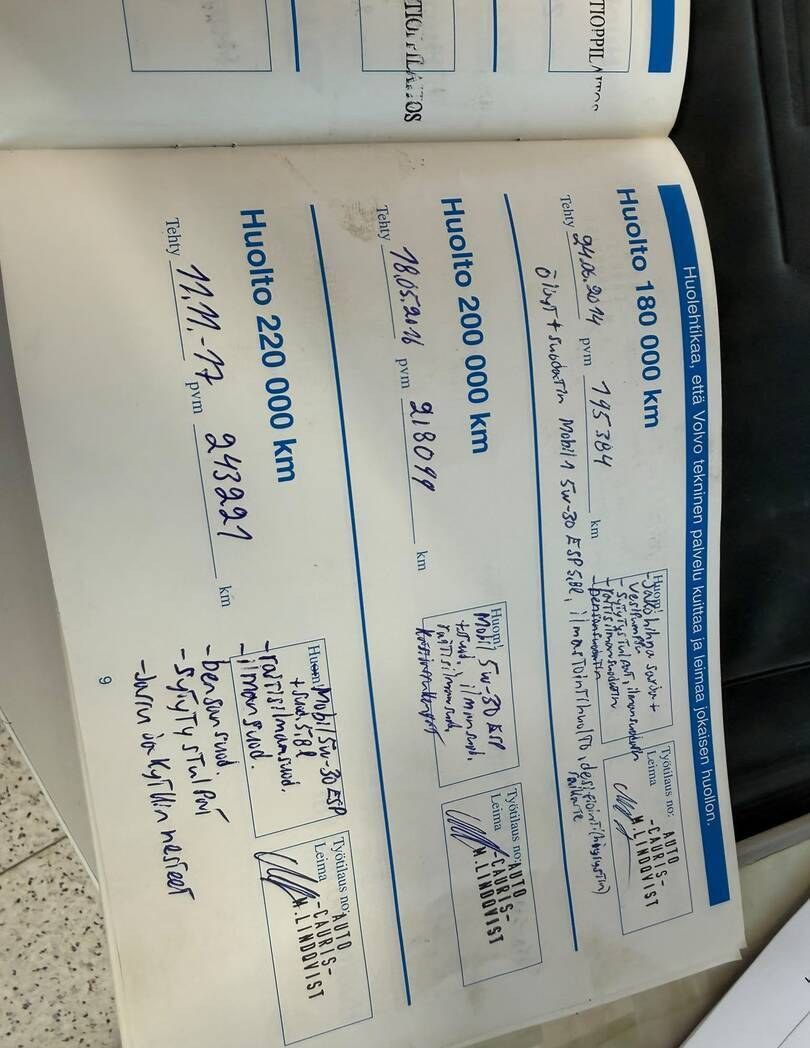 TIOPPILAITOS
TIOPPILAITOS
Huolehtikaa, että Volvo tekninen palvelu kuittaa ja leimaa jokaisen huollon.
Huolto 180 000 km
Tehty 24.06.2014 pvm 195384 km
Öljyt + suodatin Mobil 1 5w-30 ESP 5,8l, ilmastointihuolto,
Huom!
-Jakohihna sarja +
vesipumppu
-sytytystulpat, ilmansuodatin
+raitisilmansuodatin
-bensansuodatin
Työtilaus no:
Leima
AUTO
-CAURIS-
M.LINDQVIST
Huolto 200 000 km
Tehty 18.05.2016 pvm 218099 km
Huom!
Mobil 5w-30 ESP
+suod, ilmansuod,
raitisilmansuod
Työtilaus no:
Leima
AUTO
-CAURIS-
M.LINDQVIST
Huolto 220 000 km
Tehty 11.11.-17 pvm 243221 km
Huom! Mobil 5w-30 ESP
+suod 5,8l
-raitisilmansuod.
-ilmansuod.
-bensansuod.
-sytytystulpat
-Jarru ja kytkin nesteet
Työtilaus no:
Leima
AUTO
-CAURIS-
M.LINDQVIST
9